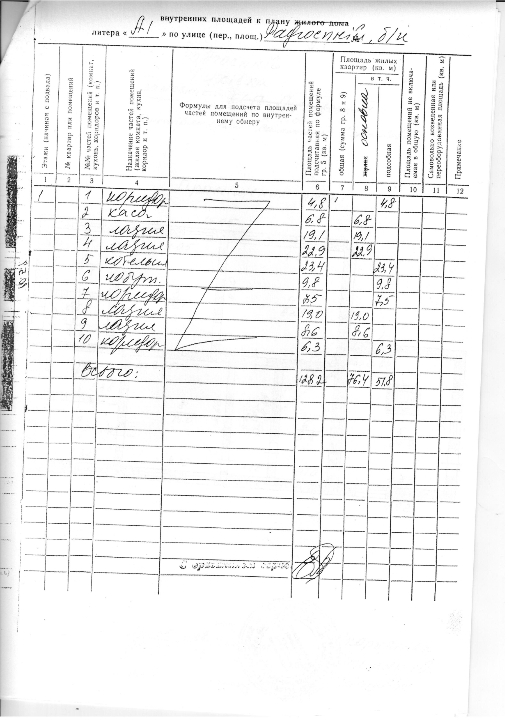 внутренних площадей к плану жилого дома
литера « А1 » по улице (пер., площ.) б/н
Этажи (начиная с подвала)
№ квартир или помещений
№№ частей помещений (комнат, кухонь, коридоров и т. п.)
Назначение частей помещений (жилая комната, кухня, коридор и т. п.)
Формулы для подсчета площадей частей помещений по внутреннему обмеру
Площадь частей помещений подсчитанная по формуле гр. 5 (кв. м)
Площадь жилых квартир (кв. м)
общая (сумма гр. 8 и 9)
в т. ч.
основна
подсобная
Площадь помещений не включаемая в общую (кв. м)
Самовольно возведенная или переоборудованная площадь (кв. м)
Примечание
1 2 3 4 5 6 7 8 9 10 11 12
1 1 коридор 4,8 4,8
2 каса 6,8 6,8
3 лазня 19,1 19,1
4 лазня 22,9 22,9
5 котельня 23,4 23,4
6 побут. 9,8 9,8
7 коридор 7,5 7,5
8 лазня 19,0 19,0
9 лазня 8,6 8,6
10 коридор 6,3 6,3
Всього: 128,2 76,4 51,8